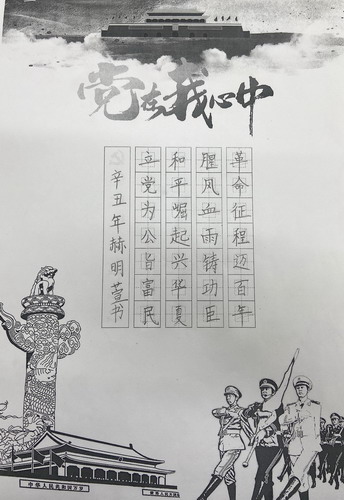 党在我心中
革命征程迈百年
腥风血雨铸功臣
和平崛起兴华夏
立党为公旨富民
辛丑年赫明萱书
中华人民共和国万岁